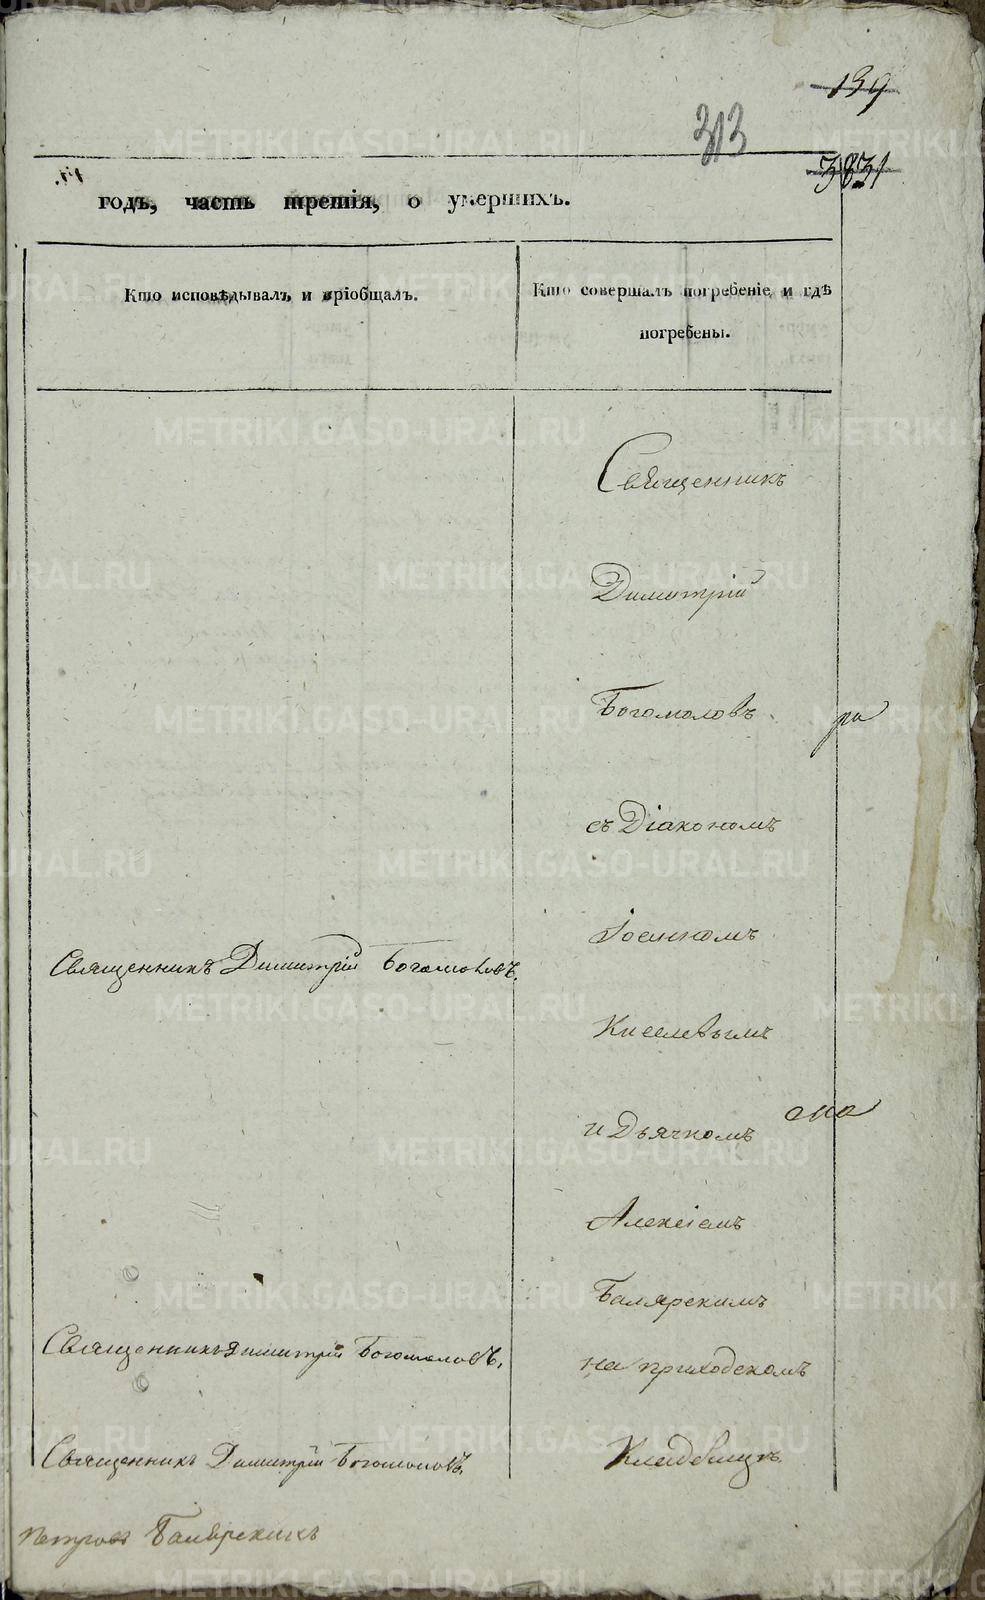 139
313
3831
годъ, часть третія, о умершихъ.
Кто исповѣдывалъ и пріобщалъ.
Кто совершалъ погребеніе и гдѣ
погребены.
Священникъ
Димитрій
Богомоловъ
ра
съ Діакономъ
Іоснномъ
Священникъ Димитрій Богомоловъ.
Киселевымъ
она
и Дьячкомъ
Алексіемъ
Балярскимъ
Священникъ Димитрій Богомоловъ.
на приходскомъ
Священникъ Димитрій Богомоловъ.
Кладбищѣ
Петровъ Балярскихъ
METRIKI.GASO-URAL.RU